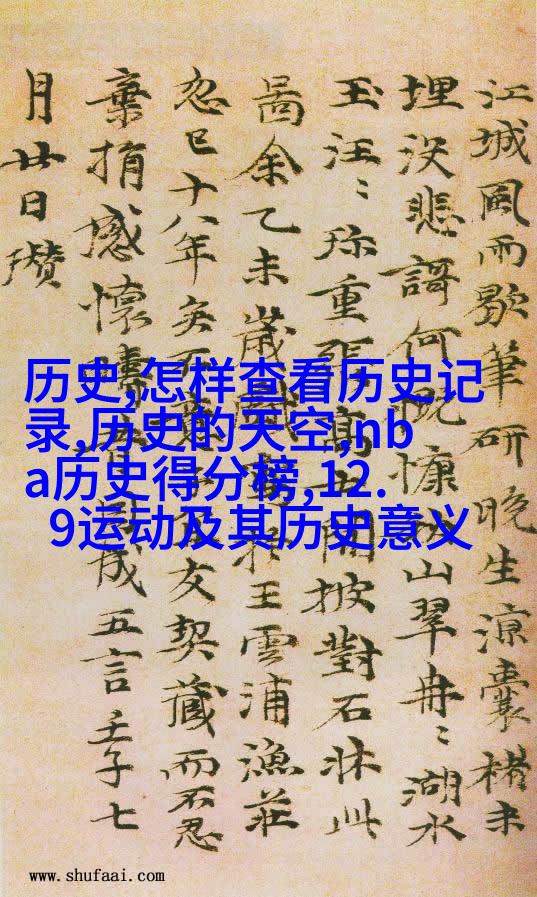 江城風雨歇筆研晚生涼囊楮未
埋没悲謌何慨慷秋山翠冉〻湖水
玉汪〻珎重張高士閒披對石牀此
啚余乙未歲戲王雲浦漁莊
忽已十八年矣不友契藏而不忍
棄捐感懷成五言壬子七
月廿日瓚
历史,怎样查看历史记
录,历史的天空,nb
a历史得分榜,12.
9运动及其历史意义
www.shufaai.com